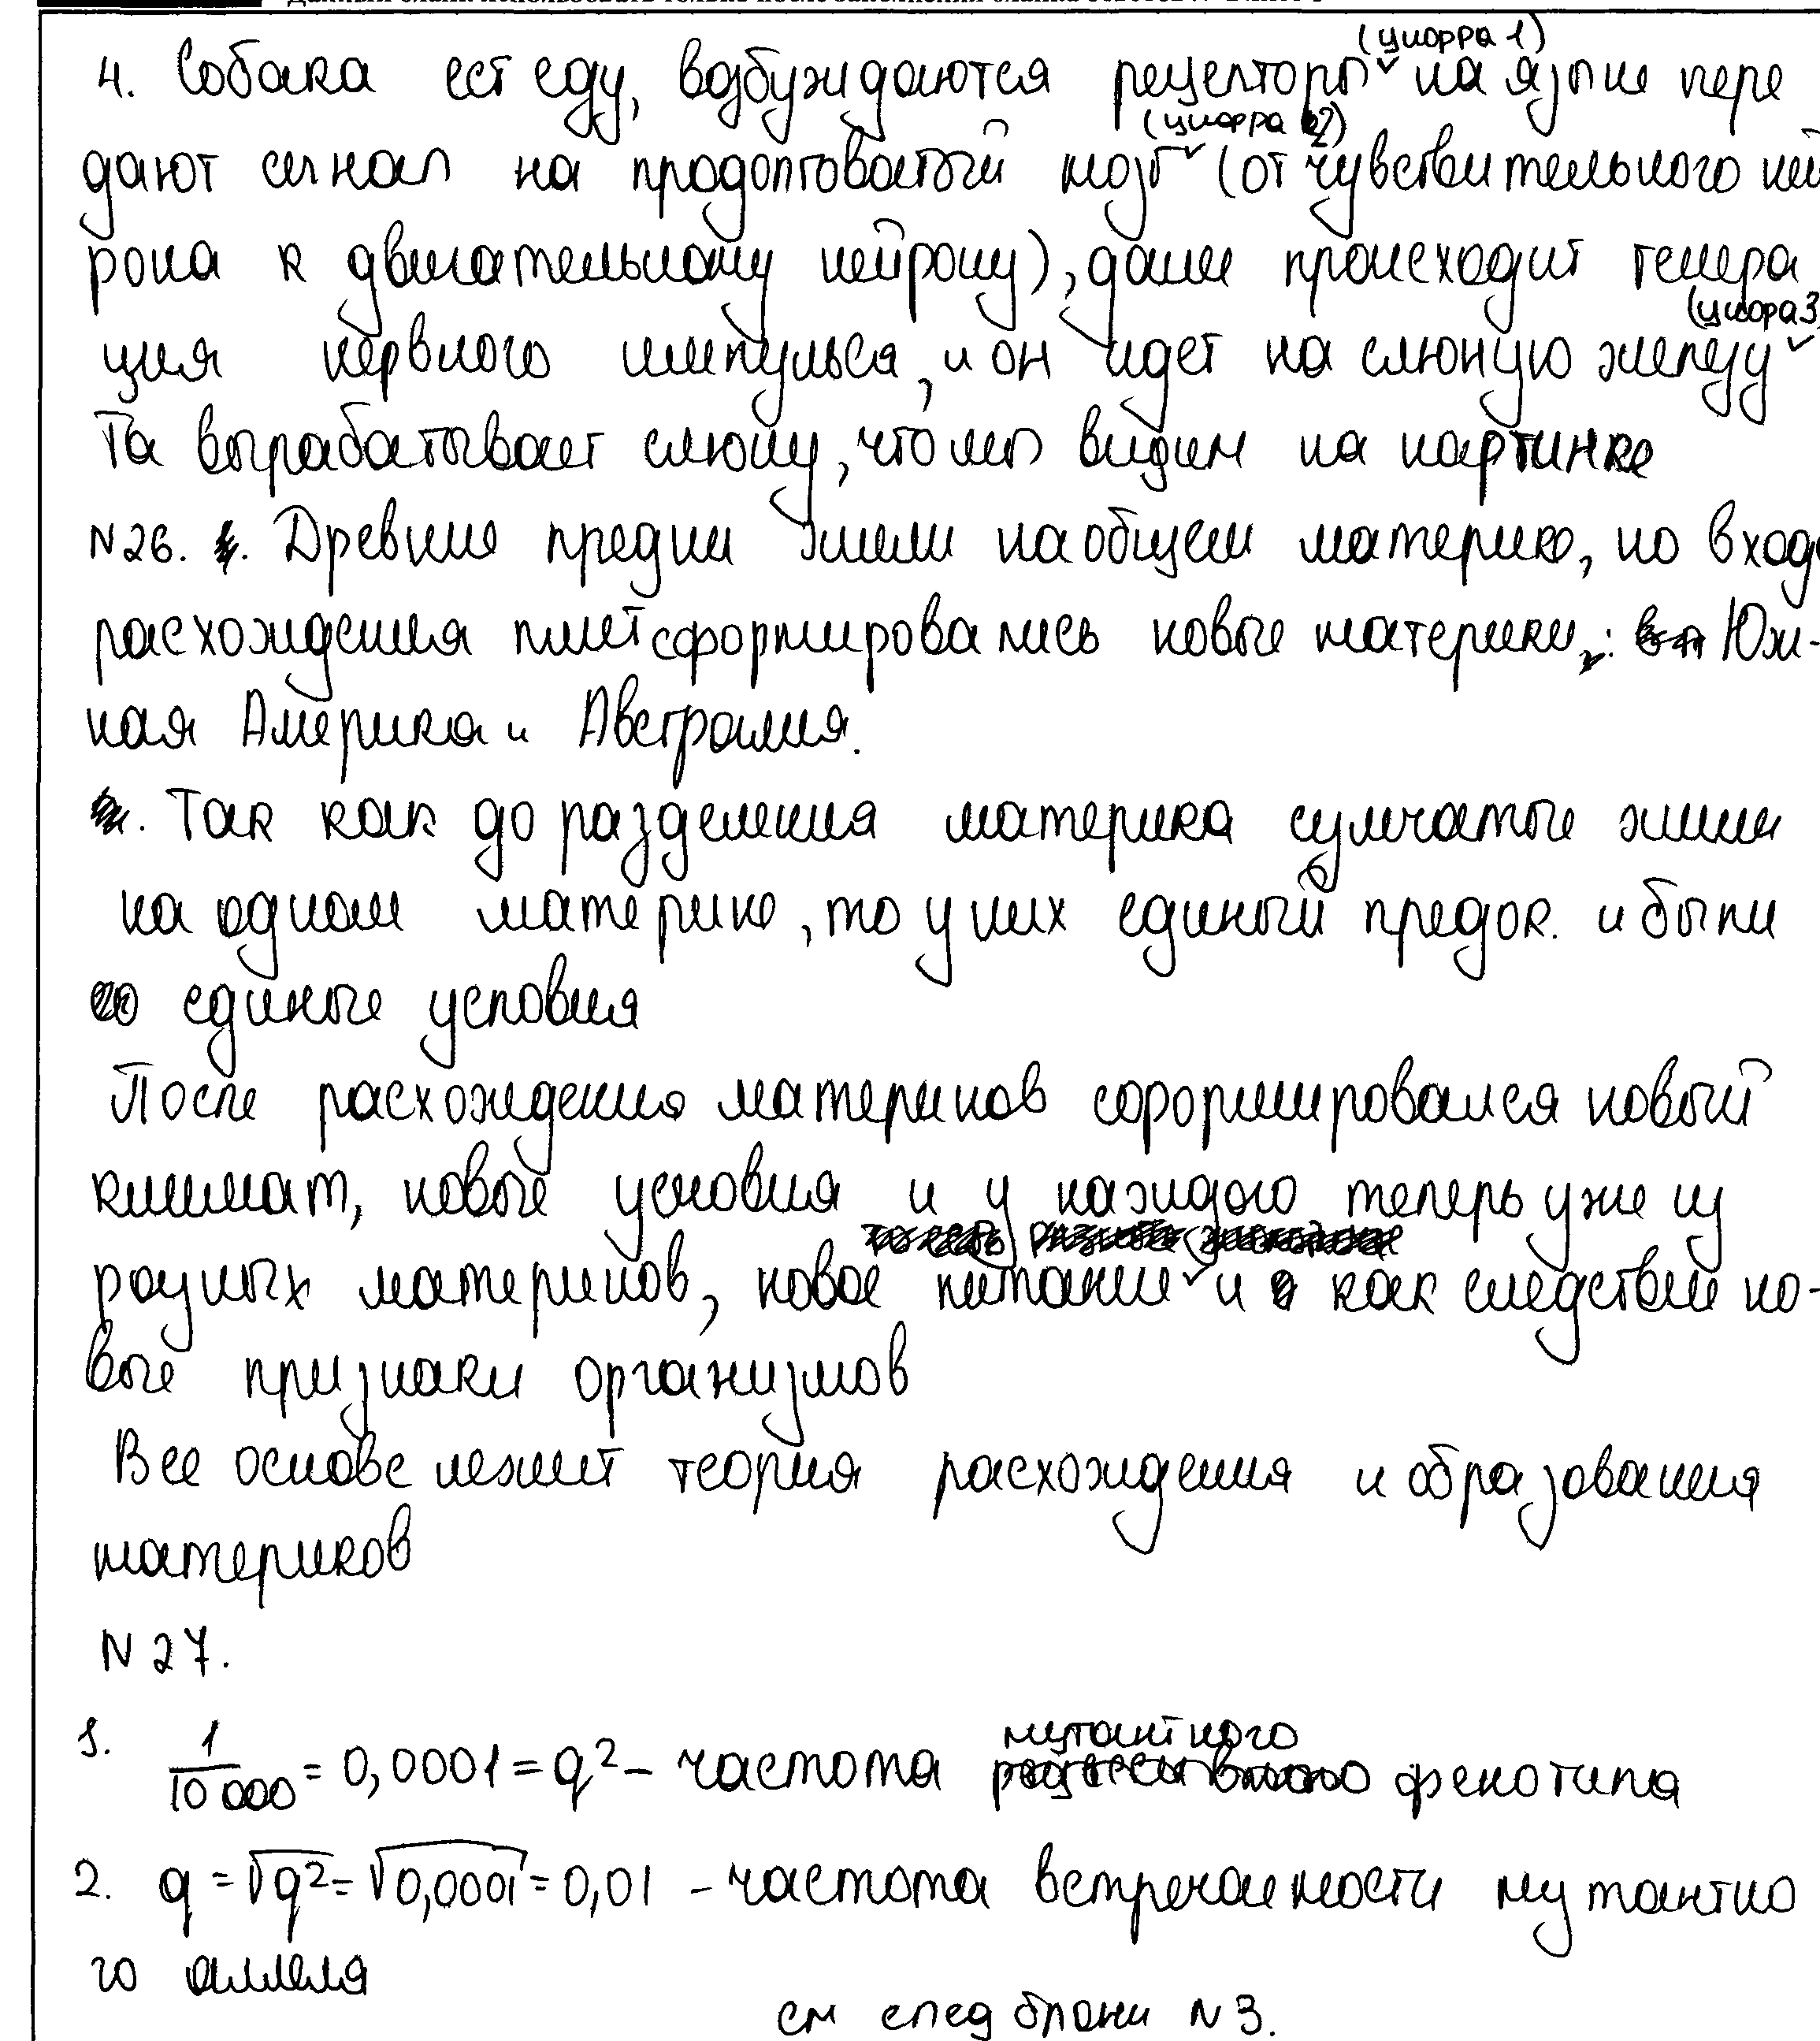 4. Собака ест еду, возбуждаются рецепторы (цифра 1) на языке пере
дают сигнал на продолговатый мозг (цифра 2) (от чувствительного ней
рона к двигательному нейрону), далее происходит генера
ция нервного импульса, и он идет на слюную железу (цифра 3)
Та вырабатывает слюну, что мы видим на картинке
N26. Древние предки жили на общем материке, но в ходе
расхождения плит сформировались новые материки: Юж-
ная Америка и Австралия.
Так как до разделения материка сумчатые жили
на одном материке, то у них единый предок. и были
единые условия
После расхождения материков сформировался новый
климат, новые условия и у каждого теперь уже из
разных материков, новое питание и как следствие но-
вые признаки организмов
В ее основе лежит теория расхождения и образования
материков
N 27.
1. 1/10 000 = 0,0001 = q² – частота мутантного фенотипа
2. q = √q² = √0,0001 = 0,01 – частота встречаемости мутантно
го аллеля
см след бланк N 3.